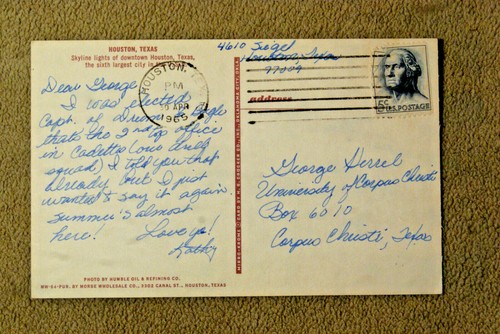 HOUSTON, TEXAS
Skyline lights of downtown Houston, Texas,
the sixth largest city in
Dear George,
I was elected
Capt. of Drum &
that's the 2nd top office
in Cadettes (our drill
squad) I told you that
already but I just
wanted to say it again.
Summer's almost
here!
Love ya!
Kathy
PHOTO BY HUMBLE OIL & REFINING CO.
WM-54-PUB. BY MORSE WHOLESALE CO., 2302 CANAL ST., HOUSTON, TEXAS
4610 Siegel
Houston, Texas
77009
HOUSTON,
PM
30 APR
1965
address
5¢ U.S. POSTAGE
George Herrel
University of Corpus Christi
Box 6010
Corpus Christi, Texas